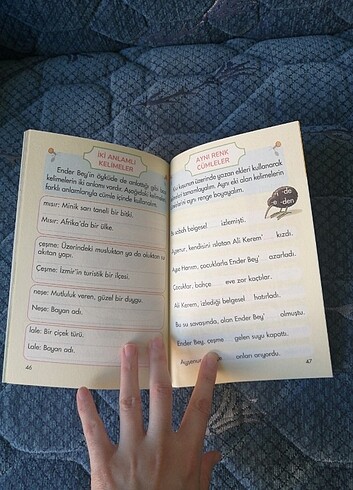 İKİ ANLAMLI
KELİMELER
Ender Bey'in öyküde de anlattığı gibi bazı
kelimelerin iki anlamı vardır. Aşağıdaki kelimeleri
farklı anlamlarıyla cümle içinde kullanalım.
mısır: Minik sarı taneli bir bitki.
Mısır: Afrika'da bir ülke.
çeşme: Üzerindeki musluktan ya da oluktan su
akıtan yapı.
Çeşme: İzmir'in turistik bir ilçesi.
neşe: Mutluluk veren, güzel bir duygu.
Neşe: Bayan adı.
lale: Bir çiçek türü.
Lale: Bayan adı.
46
AYNI RENK
CÜMLELER
kuşunun üzerinde yazan ekleri kullanarak
tamamlayalım. Aynı eki alan kelimelerin
aynı renge boyayalım.
-de
-den
belgesel izlemişti.
Aysenur, kendisini ıslatan Ali Kerem' kızdı.
Ayşe Hanım, çocuklarla Ender Bey' azarladı.
Çocuklar, bahçe eve zor kaçtılar.
Ali Kerem, izlediği belgesel hatırladı.
Bu su savaşında, olan Ender Bey' olmuştu.
Ender Bey, çeşme gelen suyu kapattı.
Aysenur onları arıyordu.
47